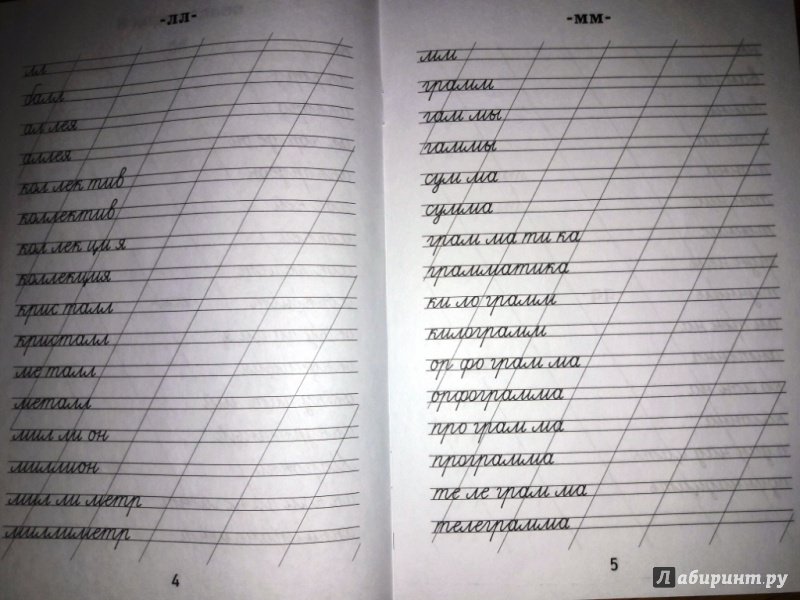 -лл-
лл
балл
ал лея
аллея
кол лек тив
коллектив
кол лек ци я
коллекция
крис талл
кристалл
ме талл
металл
мил ли он
миллион
мил ли метр
миллиметр
4
-мм-
мм
грамм
гам мы
гаммы
сум ма
сумма
грам ма ти ка
грамматика
ки ло грамм
килограмм
ор фо грам ма
орфограмма
про грам ма
программа
те ле грам ма
телеграмма
5
Лабиринт.ру